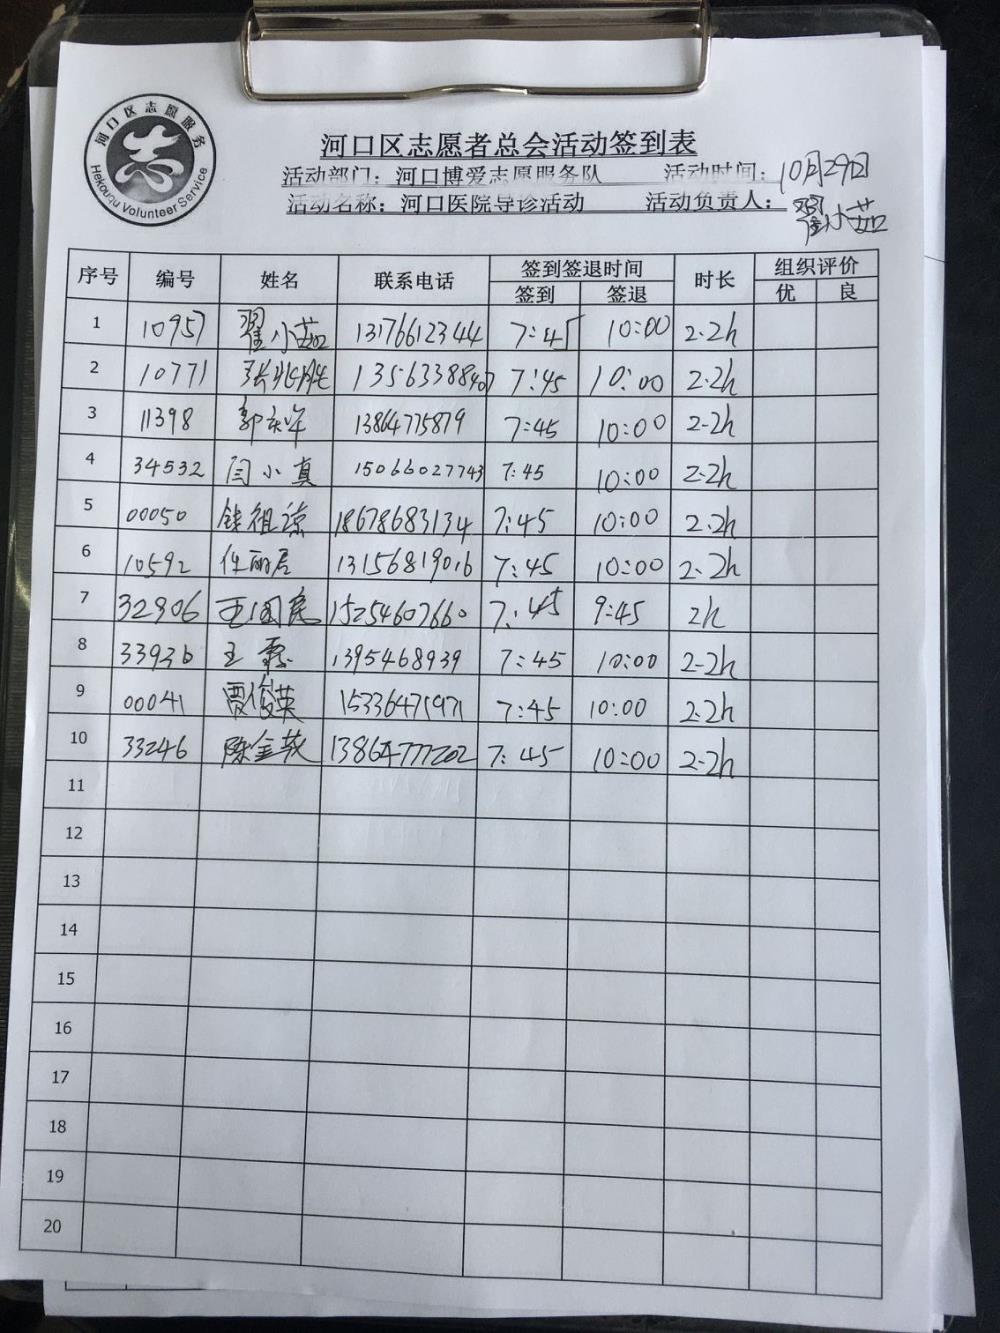 河口区志愿服务
志
Hekouqu Volunteer Service
河口区志愿者总会活动签到表
活动部门：河口博爱志愿服务队 活动时间：10月29日
活动名称：河口医院导诊活动 活动负责人：翟小茹
序号 编号 姓名 联系电话 签到签退时间 时长 组织评价
签到 签退 优 良
1 10957 翟小茹 13176612344 7:45 10:00 2.2h
2 10771 张兆胜 13563388407 7:45 10:00 2.2h
3 11398 郭 13864775879 7:45 10:00 2.2h
4 34532 闫小真 15066027743 7:45 10:00 2.2h
5 00050 祖 18678683134 7:45 10:00 2.2h
6 10592 任丽居 13156819016 7:45 10:00 2.2h
7 32906 王国亮 15254607660 7:45 9:45 2h
8 33936 王霞 1395468939 7:45 10:00 2.2h
9 00041 贾俊英 15336475971 7:45 10:00 2.2h
10 33246 陈金英 13864777202 7:45 10:00 2.2h
11
12
13
14
15
16
17
18
19
20